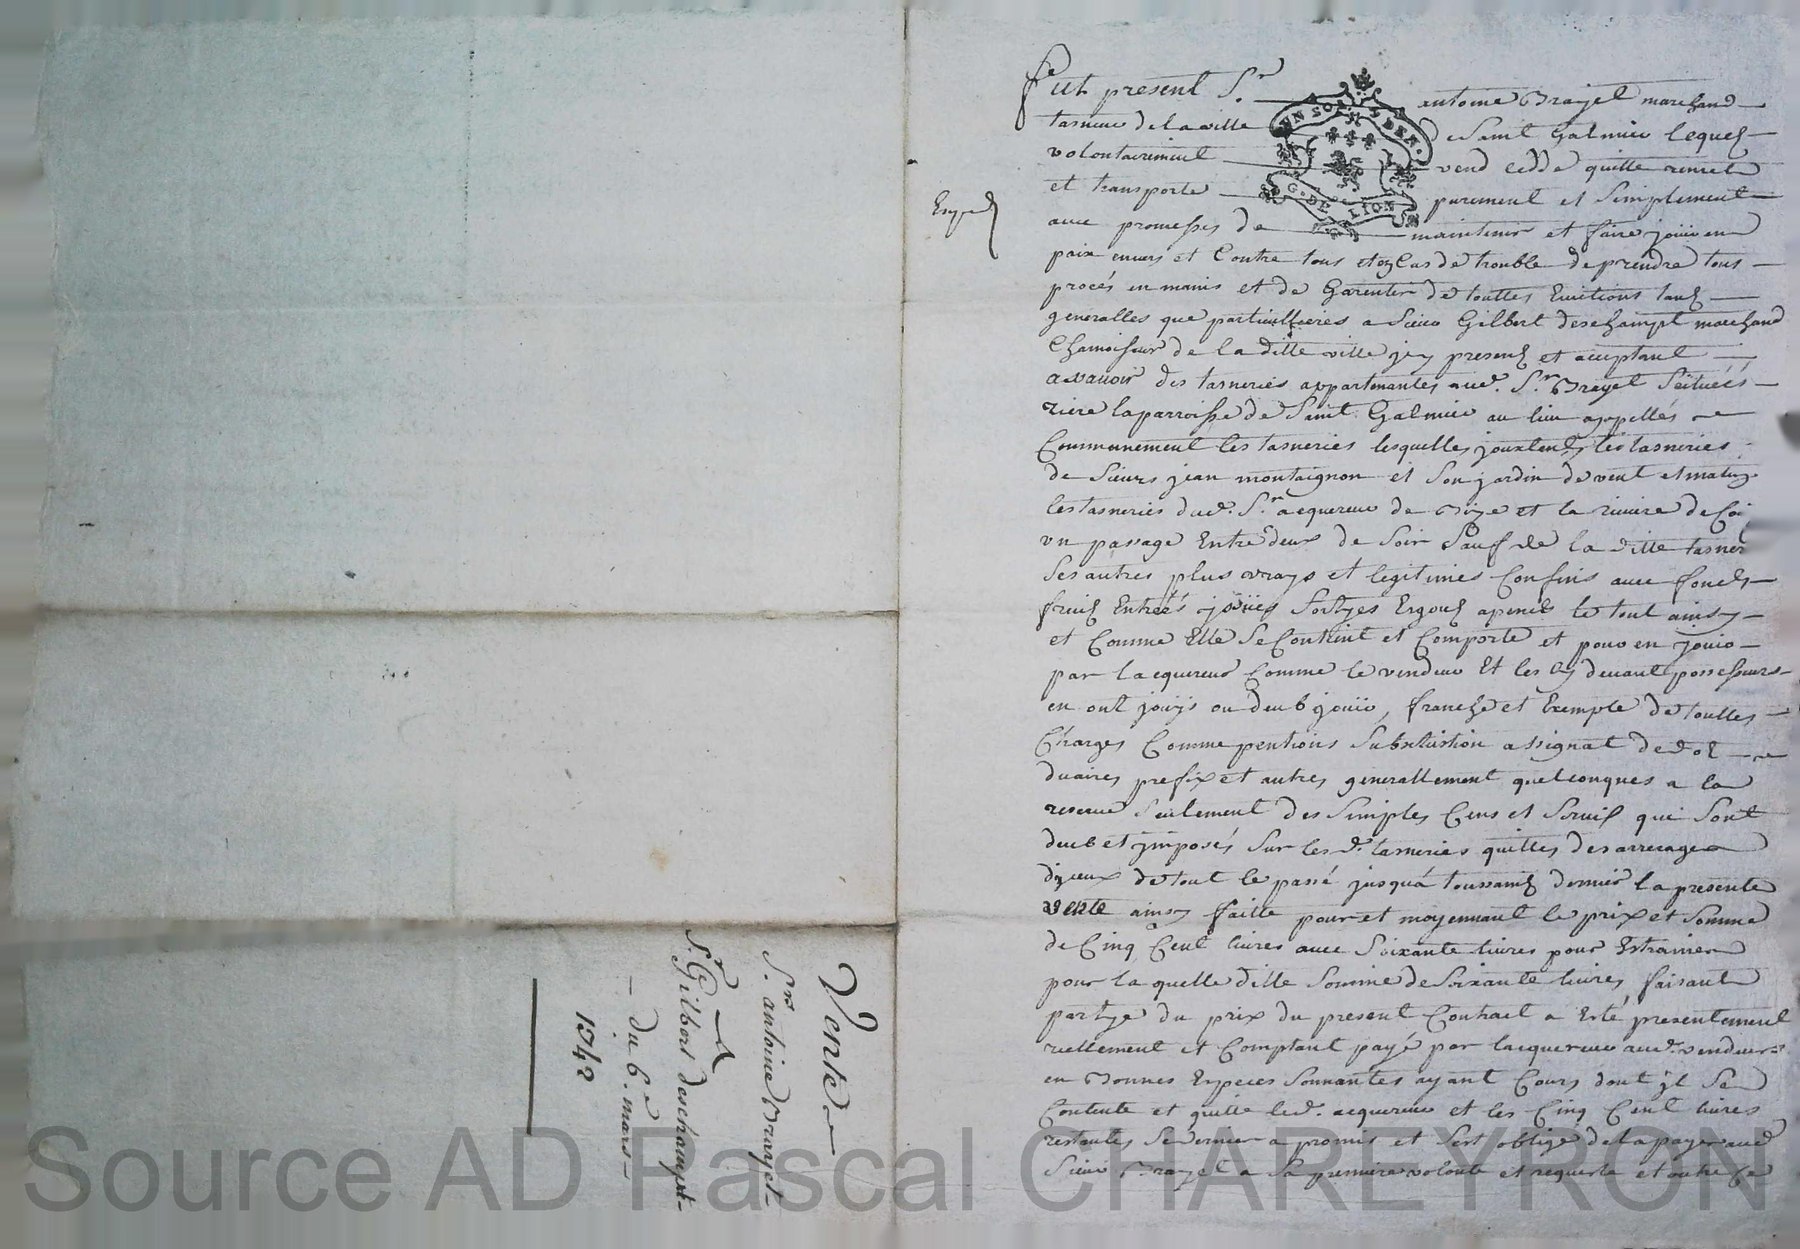 fut present Sr. antoine Brayet marchand
tasneur de la ville de saint Galmier lequel
volontairement vend cedde quitte remet
et transporte purement et simplement
avec promesses de maintenir et faire joüir en
paix envers et Contre tous et en Cas de trouble de prendre tous
procés en mains et de Garentir de touttes Evitions tant
generalles que particullieres a sieur Gilbert deschampt marchand
Chamoiseur de la ditte ville jcy present et acceptant
a savoir des tasneries appartenantes aud. Sr. Brayet Seituéés
riere la parroisse de Saint Galmier au lieu appellés
Communement les tasneries lesquelles jouxtent les tasneries
de sieurs jean montaignon et Son jardin de vent et matin
les tasneries dud. Sr. acquereur de Bize et la riviere de Coi
vn passage Entre deux de soir Sauf de la ditte tasner
Ses autres plus vrays et legitimes Confins avec fonds
fruits Entrées jssües Sortyes Egouts apenés le tout ainsy
et Comme Elle Se Contient et Comporte et pour en joüir
par l'acquereur Comme le vendeur Et les Cy devant possesseurs
en ont joüys ou deub joüir, franche et Exempte de touttes
Charges Comme pentions Substitution assignat de dot
duaires prefix et autres generallement quelconques a la
reserve Seulement des Simples Cens et Servis qui Sont
deub et jmposés Sur les d. tasneries quittes des arrerages
d'jceux de tout le passé jusqu'a toussaint dernier la presente
vente ainsy faitte pour et moyennant le prix et Somme
de Cinq Cent livres avec Soixante livres pour Estraines
pour la quelle ditte Somme de Soixante livres faisant
partye du prix du present Contract a Esté presentement
reellement et Comptant payé par l'acquereur aud. vendeur
en Bonnes Especes Sonnantes ayant Cours dont jl Se
Contente et quitte led. acquereur et les Cinq Cent livres
restantes Se dernier a promis et s'est obligé de la payer aud
Sieur Brayet a Sa premiere volonté et requeste et outre Ce
G. DE LION
Vente
Sr. antoine Brayet
A
Sr. Gilbert deschampt
du 6e. mars
1742
Source AD Pascal CHAREYRON